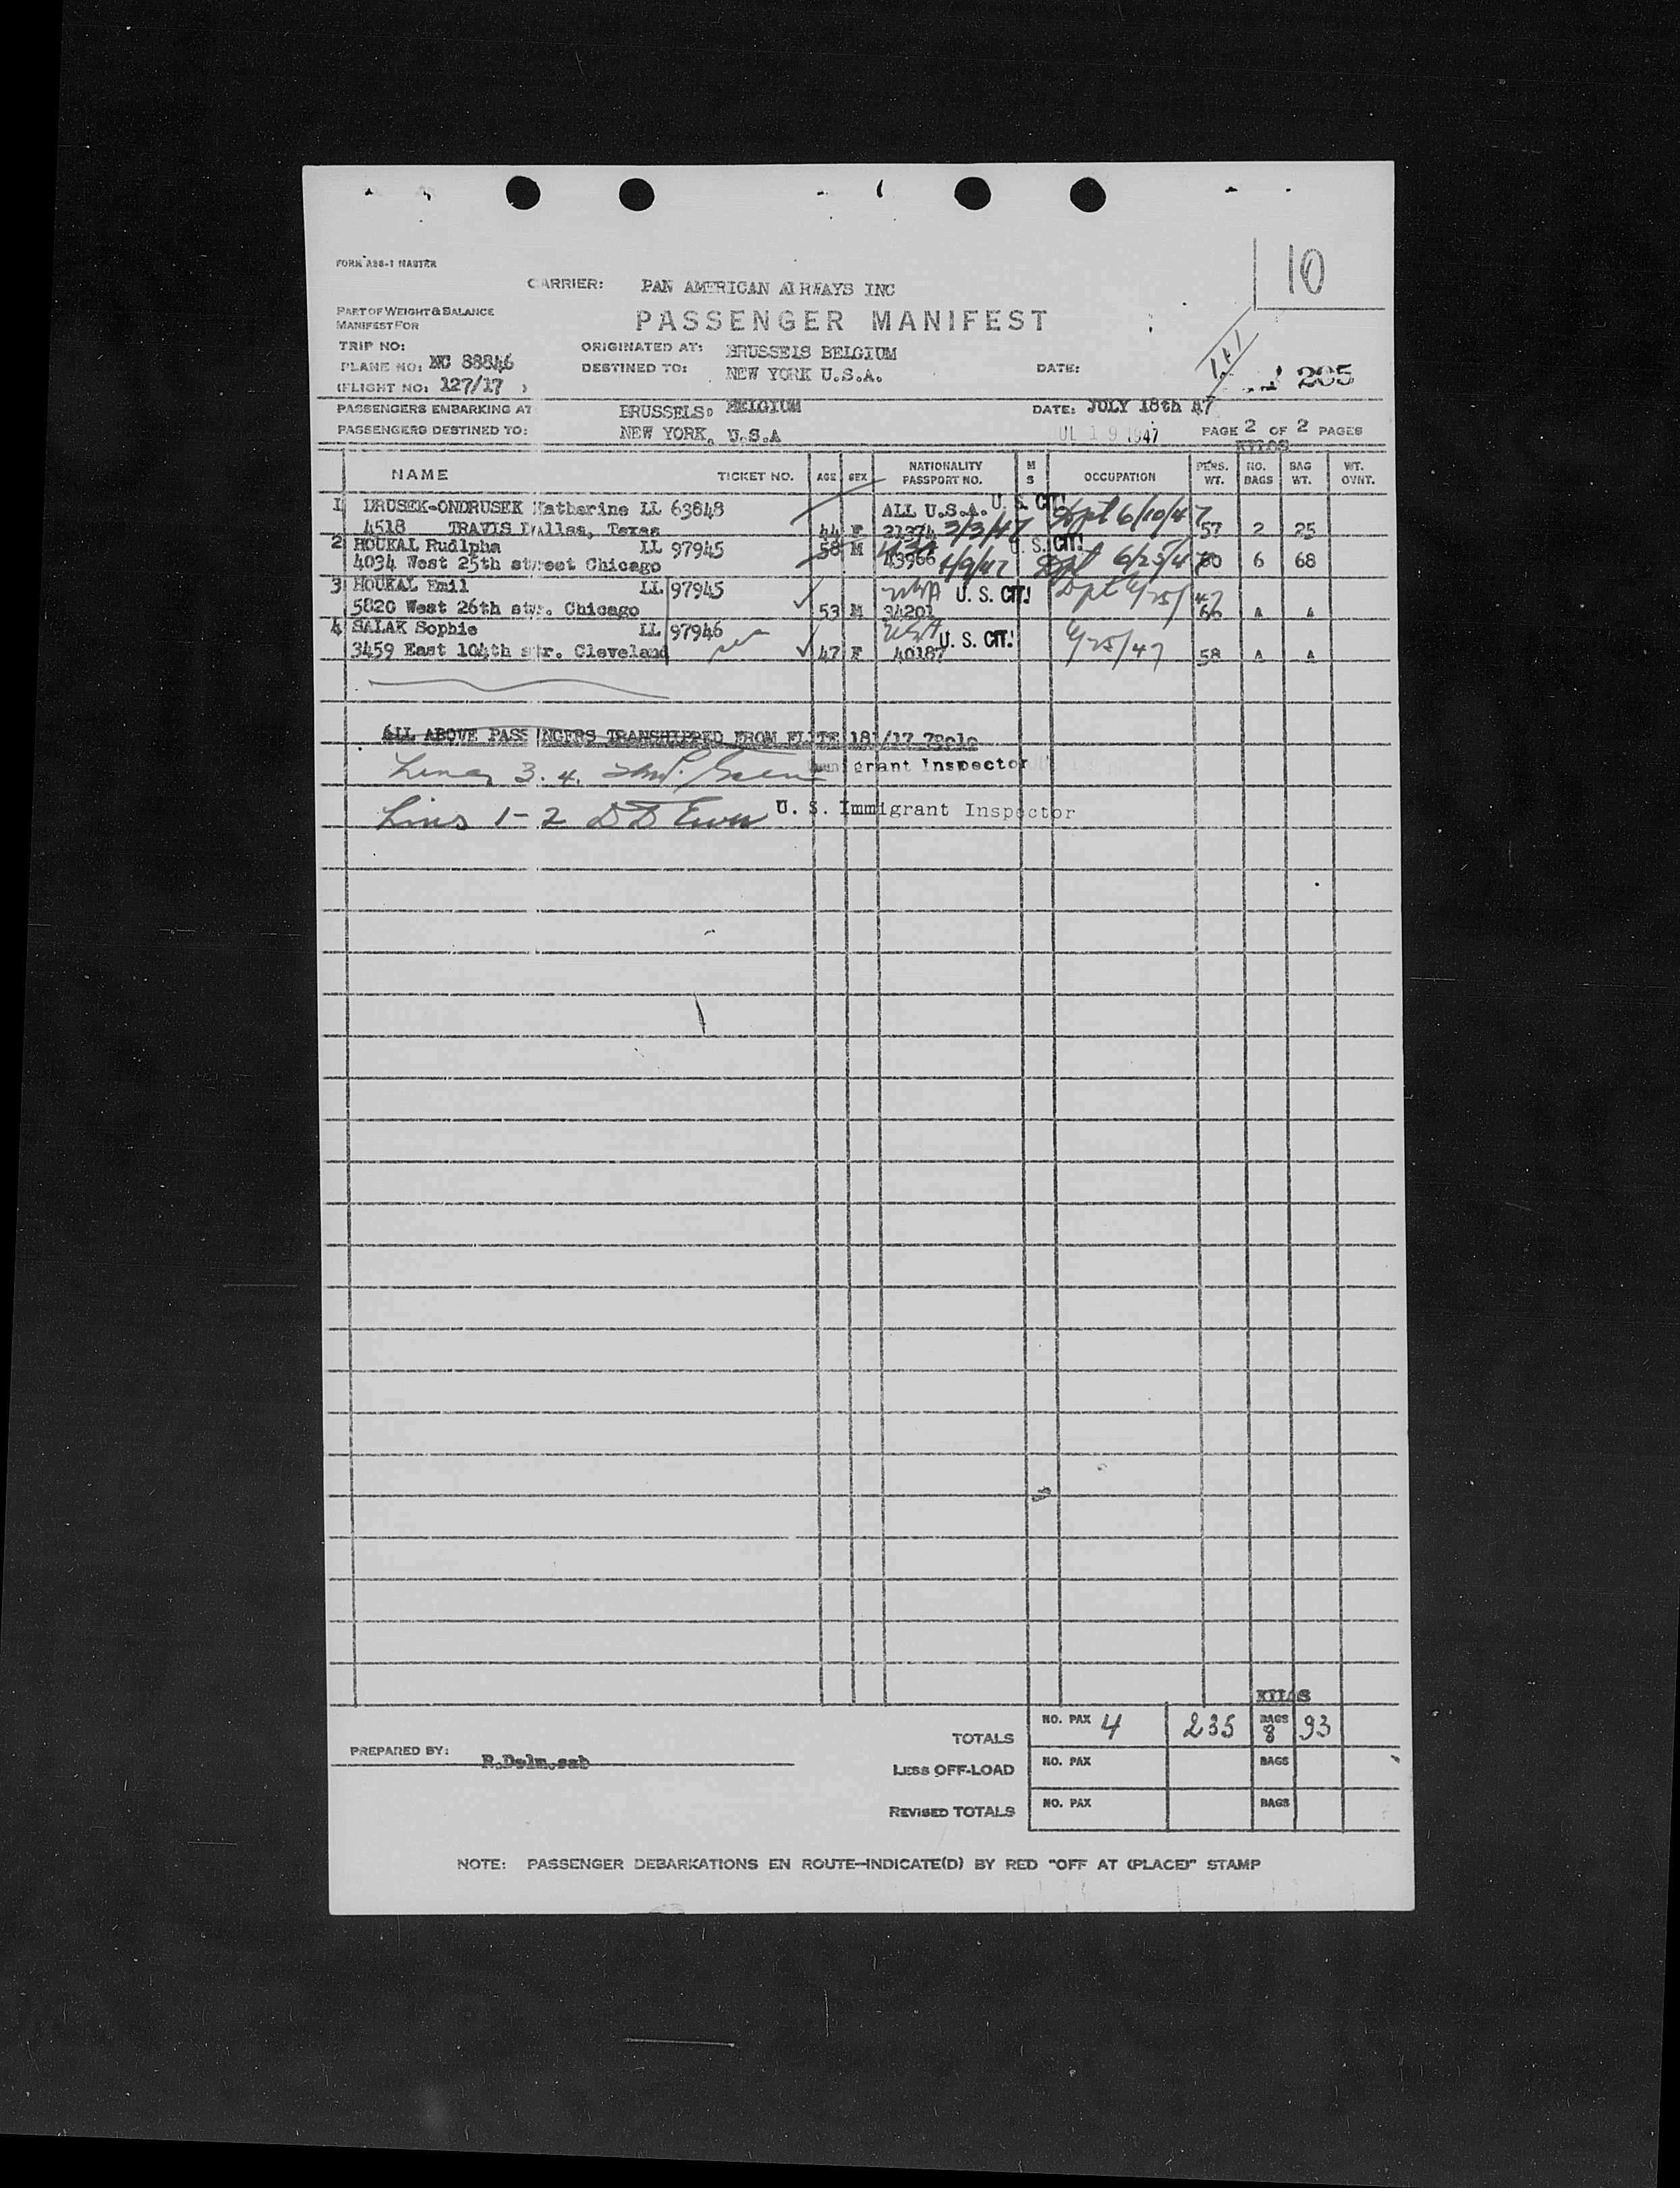 10
FORM ABS-1 MASTER
CARRIER: PAN AMERICAN AIRWAYS INC
PART OF WEIGHT & BALANCE
MANIFEST FOR
PASSENGER MANIFEST
TRIP NO:
ORIGINATED AT: BRUSSELS BELGIUM
PLANE NO: NC 88846
DESTINED TO: NEW YORK U.S.A. DATE:
(FLIGHT NO: 127/17 )
205
PASSENGERS EMBARKING AT BRUSSELS, BELGIUM DATE: JULY 18th 47
PASSENGERS DESTINED TO: NEW YORK, U.S.A JUL 19 1947 PAGE 2 OF 2 PAGES
KYLOS
NAME TICKET NO. AGE SEX NATIONALITY PASSPORT NO. M S OCCUPATION PERS. WT. NO. BAGS BAG WT. WT. OVNT.
1 DRUSEK-ONDRUSEK Katherine LL 63848 ALL U.S.A. U. S. CIT! Dpt 6/10/47
4518 TRAVIS Dallas, Texas 44 F 21374 3/3/47 57 2 25
2 HOUKAL Rudlpha LL 97945 58 M USA U. S. CIT!
4034 West 25th street Chicago 43966 4/9/47 Dpt 6/25/47 80 6 68
3 HOUKAL Emil LL 97945 USA U. S. CIT! Dpt 6/25/47
5820 West 26th str. Chicago 53 M 34201 66 A A
4 SALAK Sophie LL 97946 USA U. S. CIT! 6/25/47
3459 East 104th str. Cleveland 47 F 40187 58 A A
ALL ABOVE PASSENGERS TRANSHIPPED FROM FLITE 181/17
Lines 3. 4. Immigrant Inspector
Lines 1-2 U. S. Immigrant Inspector
KYLOS
TOTALS NO. PAX 4 235 BAGS 8 93
PREPARED BY:
LESS OFF-LOAD NO. PAX BAGS
REVISED TOTALS NO. PAX BAGS
NOTE: PASSENGER DEBARKATIONS EN ROUTE—INDICATE(D) BY RED "OFF AT (PLACE)" STAMP